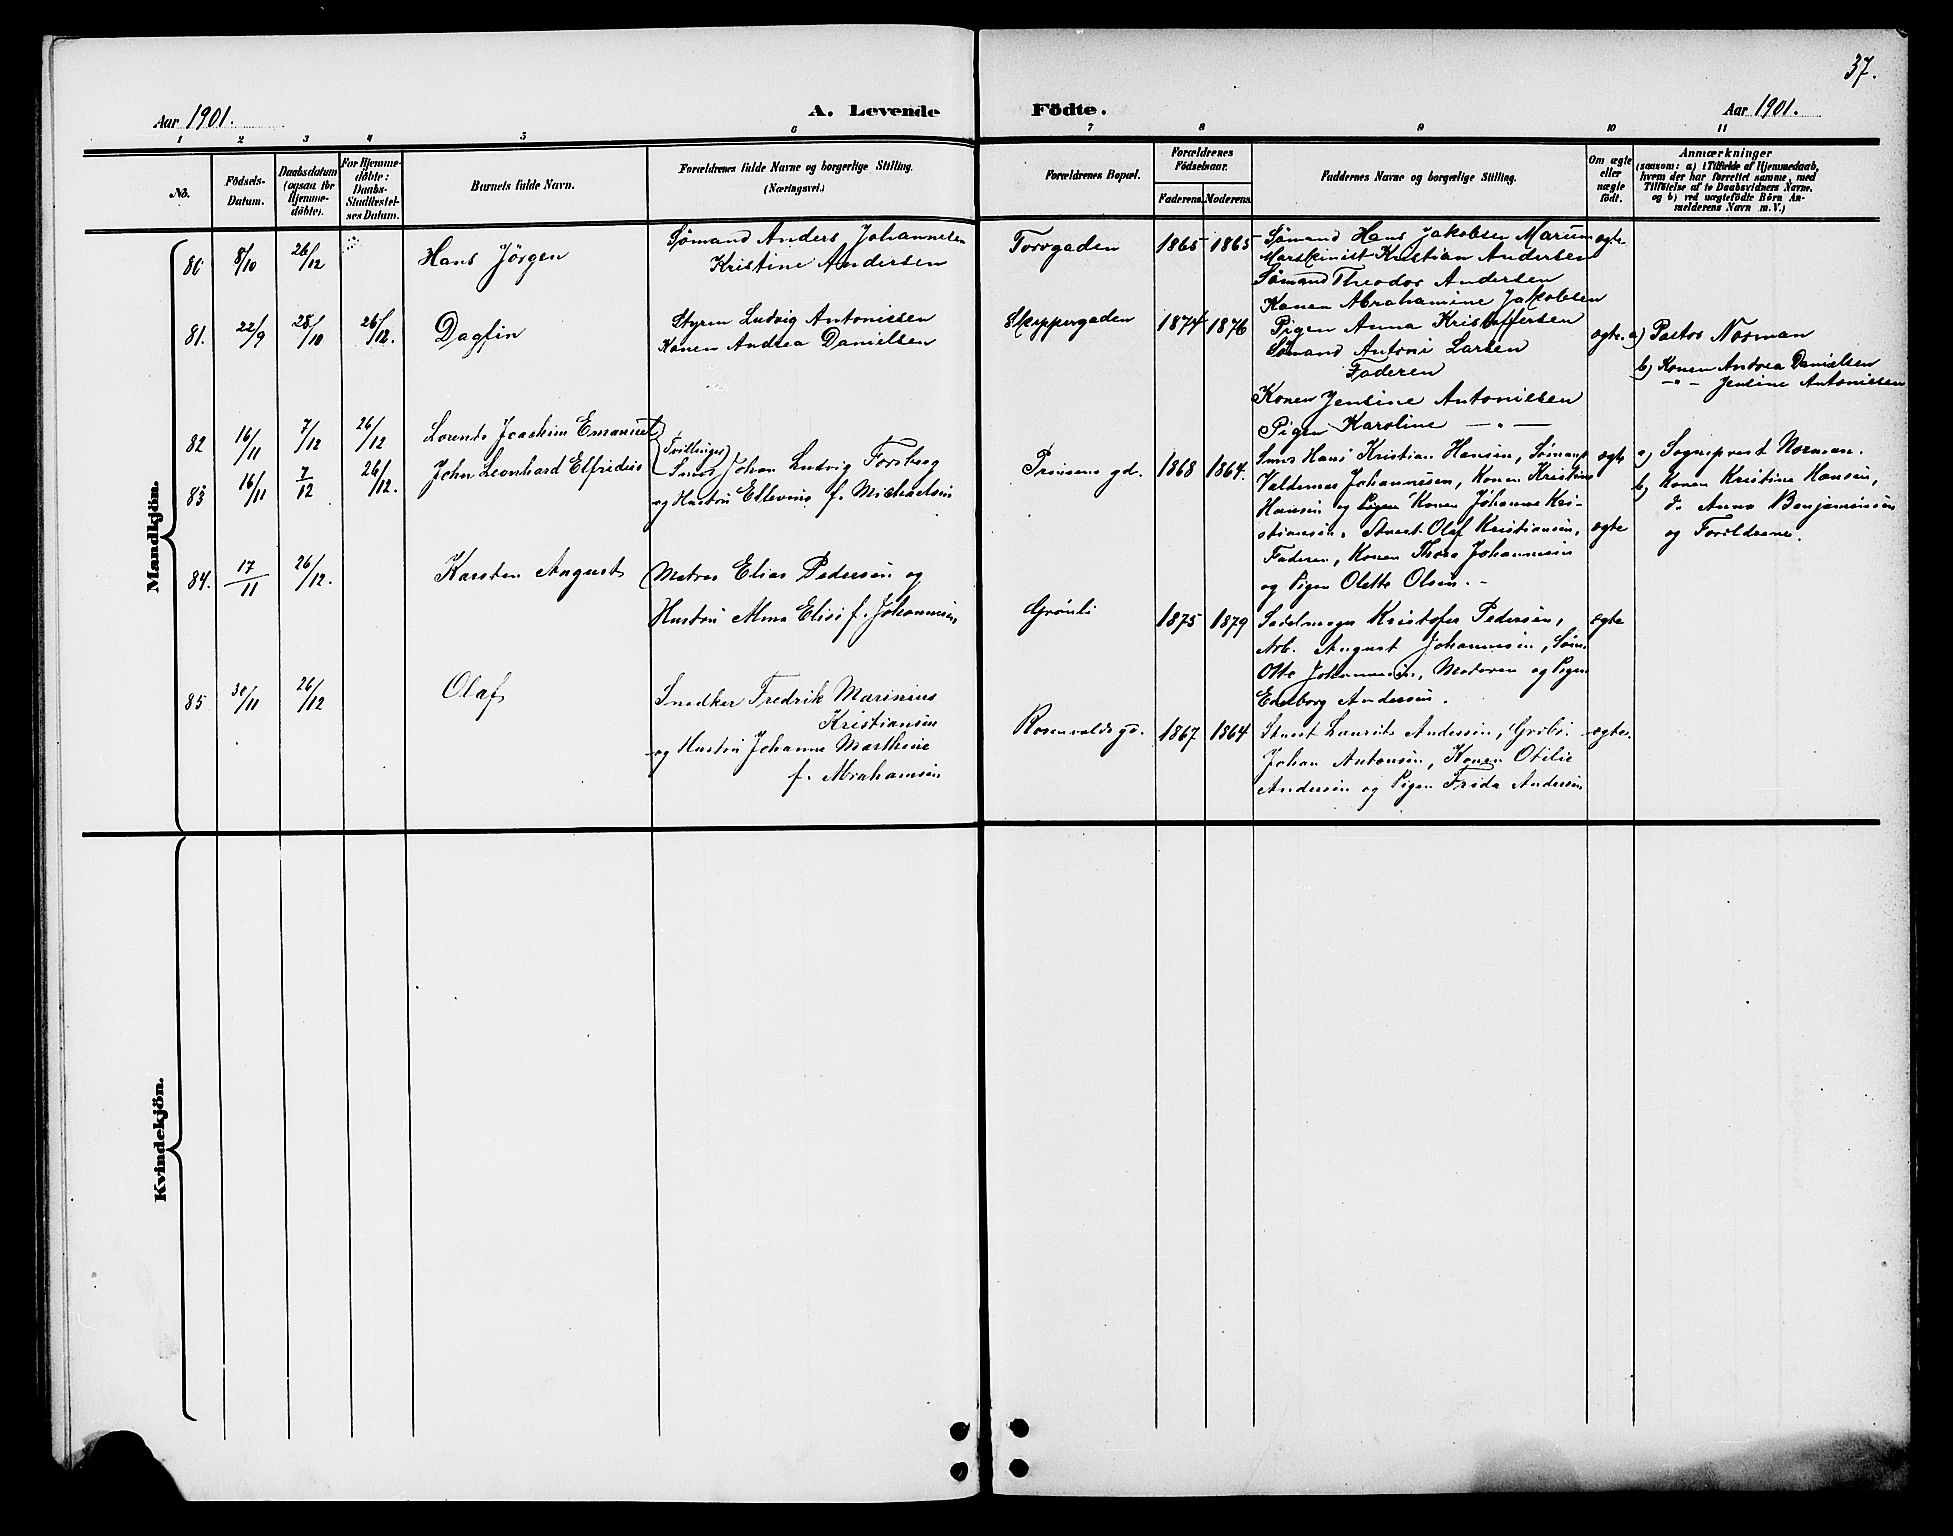 37.
Aar 1901.
A. Levende Födte.
Aar 1901.
1 2 3 4 5 6 7 8 9 10 11
No.
Födsels-Datum.
Daabsdatum (ogsaa for Hjemmedöbte).
For Hjemmedöbte: Daabs-Stadfæstelses Datum.
Barnets fulde Navn.
Forældrenes fulde Navne og borgerlige Stilling.
(Næringsvei.)
Forældrenes Bopæl.
Forældrenes Födselsaar.
Faderens. Moderens.
Faddernes Navne og borgerlige Stilling.
Om ægte eller uægte födt.
Anmærkninger
(saasom: a) i Tilfælde af Hjemmedaab, hvem der har forrettet samme, med Tilföielse af to Daabsvidners Navne, og b) ved uægtefödte Börn Anmelderens Navn m. V.)
Mandkjön.
80 8/10 26/12 Hans Jörgen
Sømand Anders Johannesen
Kristine Andersen
Torvgaden 1865 1865
Sømand Hans Jakobsen Marum
Marskinist Kristian Andersen
Sømand Theodor Andersen
Konen Abrahamine Jakobsen
ægte
81. 22/9 28/10 26/12. Dagfin
Styrm Ludvig Antonissen
Konen Andrea Danielsen
Skippergaden 1874 1876
Pigen Anna Kristoffersen
Sømand Antoni Larsen
Faderen
Konen Jensine Antonissen
Pigen Karoline — " —
ægte. a) Pastor Norman
b) Konen Andrea Danielsen
— " — Jensine Antonissen
82 16/11 7/12 26/12 Lorents Joachim Emanuel
83 16/11 7/12 26/12. John Leonhard Elfridus
Tvillinger
Smed Johan Ludvig Forsberg
og Hustru Ellevine f. Michaelsen
Prinsens gd. 1868 1864.
Smed Hans Kristian Hansen, Sømand
Valdemar Johannesen, Konen Kristine
Hansen og Konen Johanne Kri-
stiansen. Stuert Olaf Kristiansen,
Faderen, Konen Thora Johannesen
og Pigen Olette Olsen. -
ægte
ægte
a) Sogneprest Norman.
b) Konen Kristine Hansen,
do Anna Benjaminsen
og Forældrene.
84. 17/11 26/12. Karsten August
Matros Elias Pedersen og
Hustru Alma Elise f. Johannesen,
Grønli 1875 1879
Sadelmager Kristofer Pedersen,
Arb. August Johannesen, Søm.
Otto Johannesen, Moderen og Pigen
Edelborg Andersen.
ægte
85 30/11 26/12 Olaf
Snedker Fredrik Marinius
Kristiansen
og Hustru Johanne Marthine
f. Abrahamsen
Rosenvolds gd. 1867 1864
Stuert Laurits Andersen,
Johan Antonsen, Konen Otilie
Andersen og Pigen Frida Andersen
ægte.
Kvindekjön.